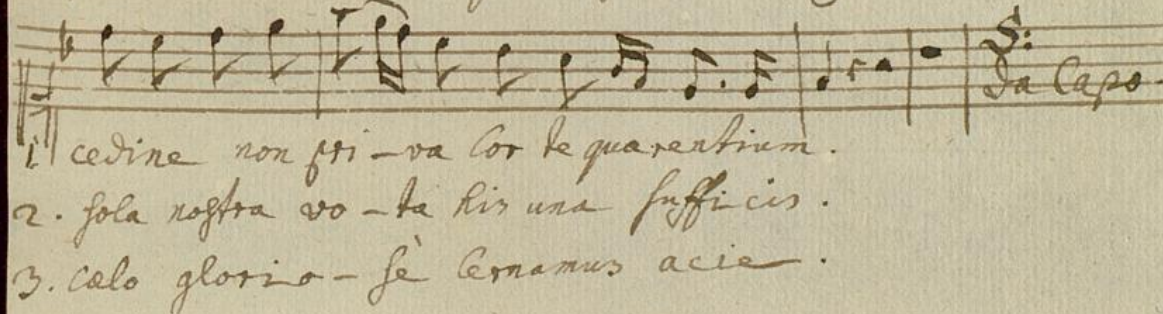 S:
Da Capo.
1 cedine non pri-va Cor te quærentium.
2. sola nostra vo-ta his una sufficis.
3. cælo glorio-sè Cernamus acie.